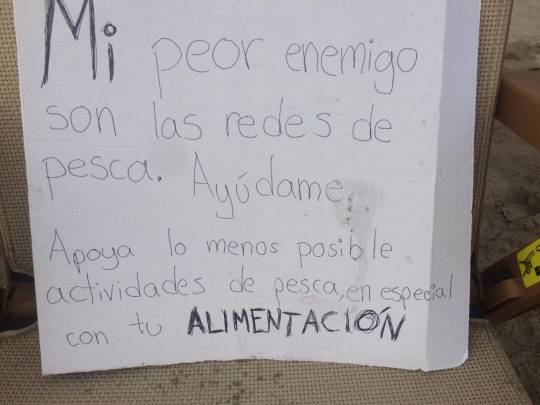 Mi peor enemigo
son las redes de
pesca. Ayúdame.
Apoya lo menos posible
actividades de pesca, en especial
con tu ALIMENTACIÓN